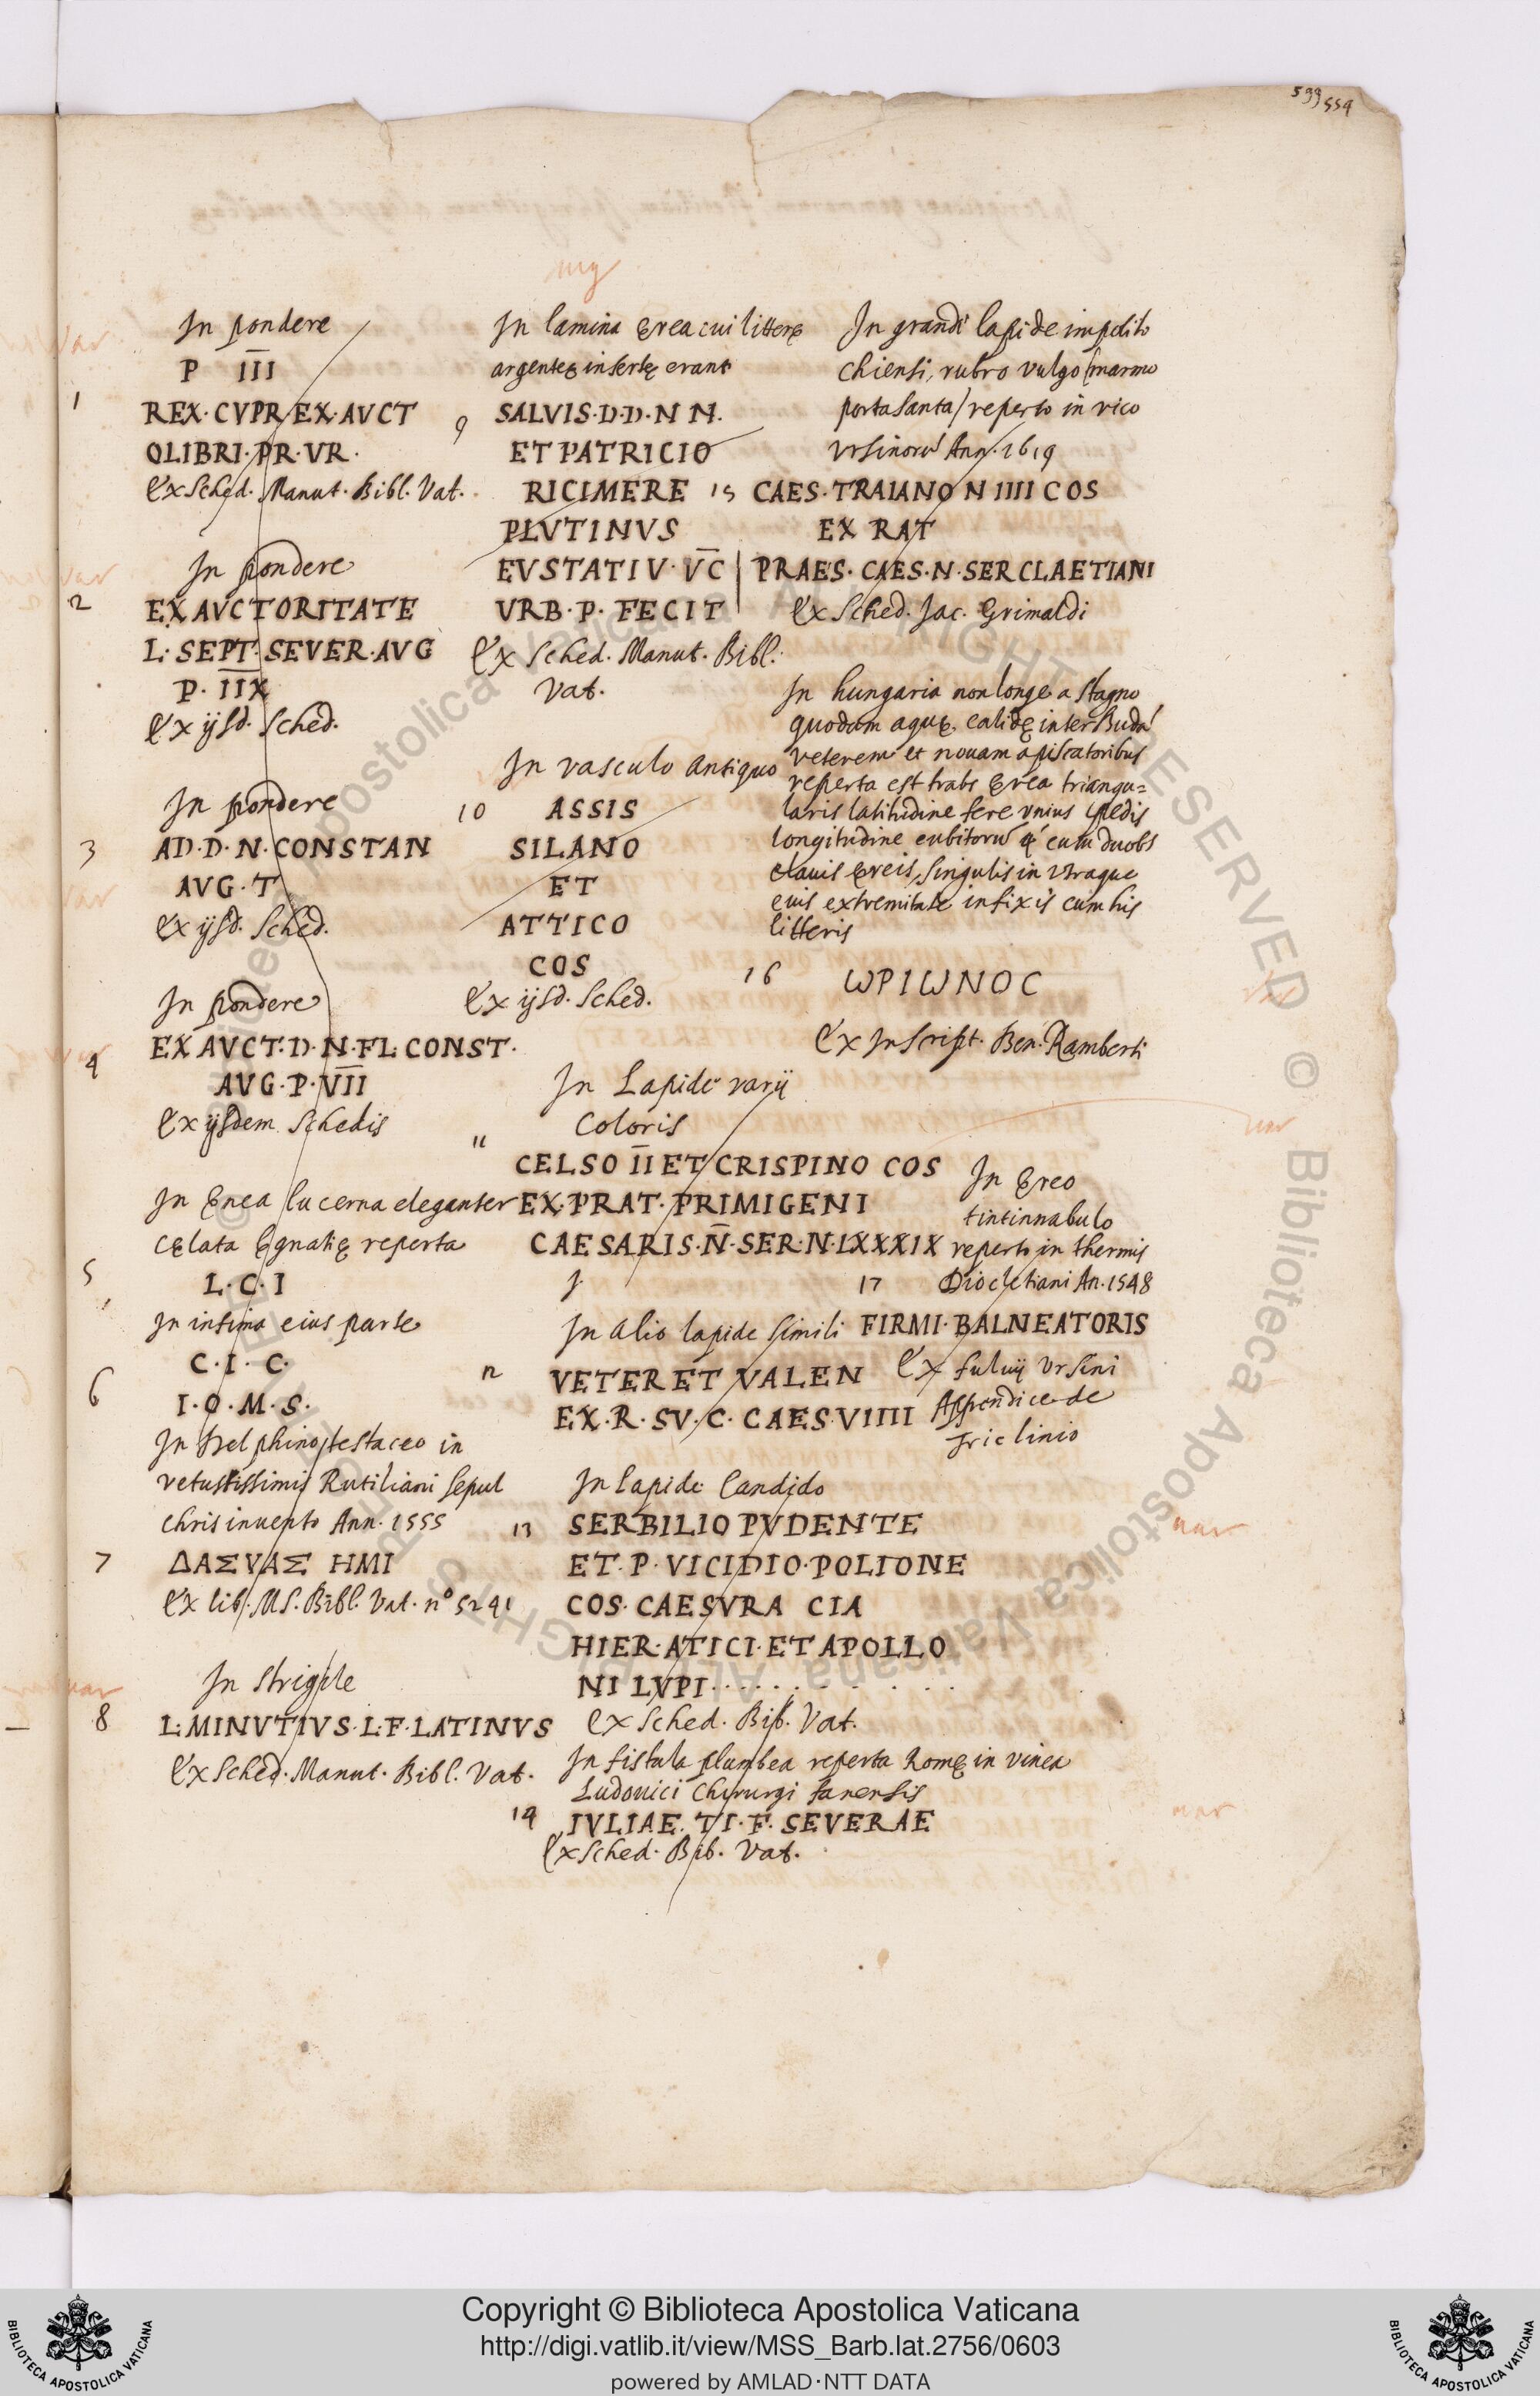 599 554
In pondere
P III
1
REX·CVPR EX·AVCT
OLIBRI·PR·VR·
Ex Sched. Manut. Bibl. Vat.
In pondere
2
EX AVCTORITATE
L·SEPT·SEVER·AVG
P·IIX
Ex ijsd. Sched.
In pondere
3
AD·D·N·CONSTAN
AVG·T
Ex ijsd. Sched.
In pondere
4
EX AVCT·D·N·FL CONST·
AVG·P·VII
Ex ijsdem Schedis
In ęnea lucerna eleganter
cęlata Egnatię reperta
5
L·C·I
In infima eius parte
C·I·C·
6
I·O·M·S·
In Delphino testaceo in
vetustissimis Rutiliani sepul
chris inuento Ann. 1555
7
ΔΑΣΥΑΣ ΗΜΙ
Ex lib. MS. Bibl. Vat. nº 5241
In strigile
8
L·MINVTIVS·L·F·LATINVS
Ex Sched. Manut. Bibl. Vat.
In lamina ęrea cui litterę
argentę insertę erant
9
SALVIS·D·D·N N.
ET PATRICIO
RICIMERE
PLVTINVS
EVSTATIV·VC
VRB·P·FECIT
Ex Sched. Manut. Bibl.
Vat.
In vasculo Antiquo
10
ASSIS
SILANO
ET
ATTICO
COS
Ex ijsd. Sched.
In Lapide varij
Coloris
11
CELSO II ET CRISPINO COS
EX·PRAT·PRIMIGENI
CAESARIS·N·SER·N·LXXXIX
In alio lapide simili
12
VETER ET VALEN
EX·R·SV·C·CAES·VIIII
In lapide Candido
13
SERBILIO PVDENTE
ET·P·VICIDIO·POLIONE
COS·CAESVRA CIA
HIER·ATICI·ET APOLLO
NI LVPI· · · · · · · ·
Ex Sched. Bib. Vat.
In fistula plumbea reperta Romę in vinea
Ludouici Chirurgi fanensis
14
IVLIAE·TI·F·SEVERAE
Ex Sched. Bib. Vat.
In grandi lapide impolito
chiensi, rubro vulgo (marmo
porta santa) reperto in vico
Vrsinorū Ann. 1619
15
CAES·TRAIANO N IIII COS
EX RAT
PRAES·CAES·N·SER CLAETIANI
Ex Sched. Jac. Grimaldi
In hungaria non longe a stagno
quodam aquę calidę inter Budā
veterem et nouam a piscatoribus
reperta est trabs ęrea triangu=
laris latitudine fere vnius pedis
longitudine cubitorū 4 cum duobs
clauis ęreis, singulis in vtraque
eius extremitate infixis cum his
litteris
16
ωΡΙωΝΟC
Ex Inscript. Ben. Ramberti
In ęreo
tintinnabulo
reperto in thermis
17
Diocletiani An. 1548
FIRMI·BALNEATORIS
Ex fuluij Vrsini
Appendice de
Triclinio
Copyright © Biblioteca Apostolica Vaticana
http://digi.vatlib.it/view/MSS_Barb.lat.2756/0603
powered by AMLAD·NTT DATA